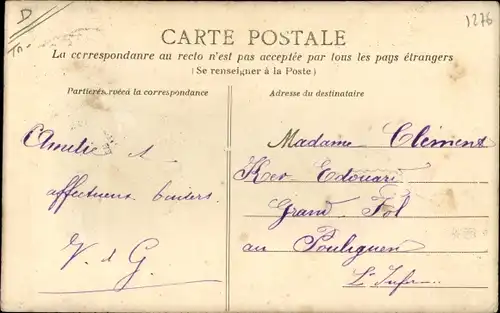 D
Tn.
1276
CARTE POSTALE
La correspondanre au recto n'est pas acceptée par tous les pays étrangers
(Se renseigner à la Poste)
Partie réservée à la correspondance
Adresse du destinataire
Amitié &
affectueux baisers
V. d G.
Madame Clément
Ker Edouard
Grand Fol
au Pouliguen
Lre Infre